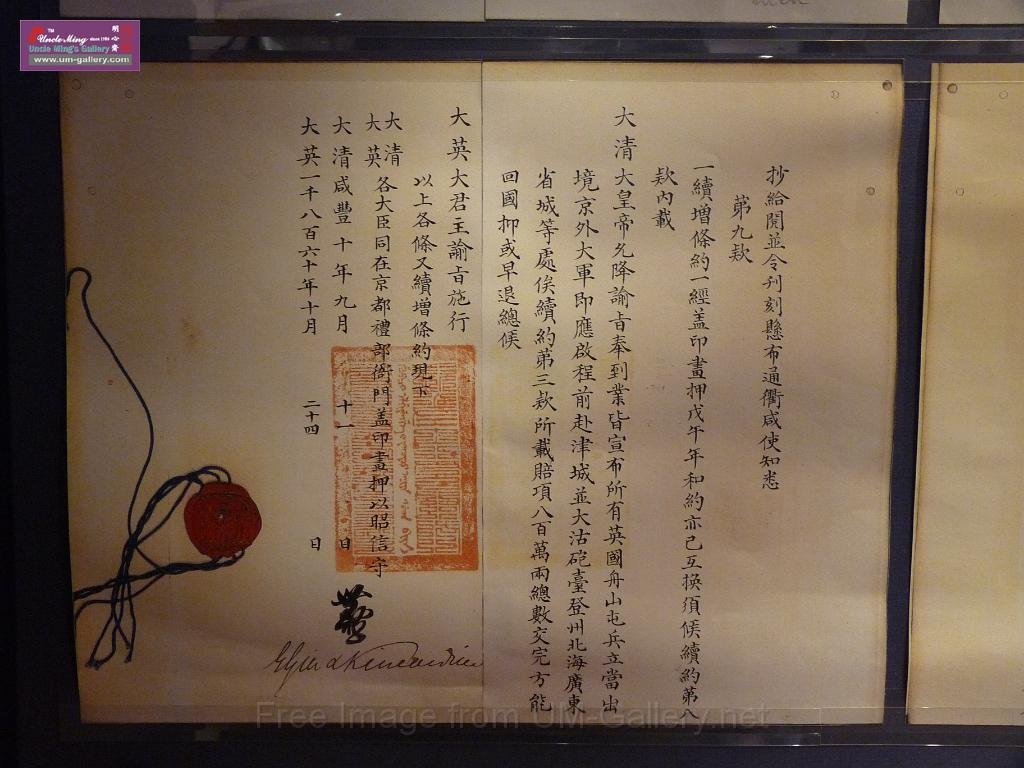 抄給閱並令刊刻懸布通衢咸使知悉
第九款
一續增條約一經盖印畫押戊午年和約亦已互換須俟續約第八
款內載
大清大皇帝允降諭旨奉到業皆宣布所有英國舟山屯兵立當出
境京外大軍即應啟程前赴津城並大沽砲臺登州北海廣東
省城等處俟續約第三款所載賠項八百萬兩總數交完方能
回國抑或早退總候
大英大君主諭旨施行
以上各條又續增條約現下
大清
大英各大臣同在京都禮部衙門盖印畫押以昭信守
大清咸豐十年九月十一日
大英一千八百六十年十月二十四日
Elgin & Kincardine
TM
Uncle Ming since 1986
明心齋
Uncle Ming's Gallery
www.um-gallery.com
Free Image from UM-Gallery.net